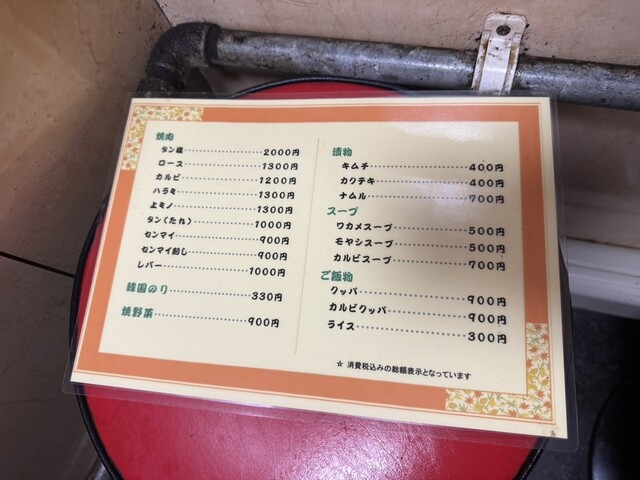 焼肉
タン塩……………………2000円
ロース……………………1300円
カルビ……………………1200円
ハラミ……………………1300円
上ミノ……………………1300円
タン(たれ)………………1000円
センマイ…………………900円
センマイ刺し……………900円
レバー……………………1000円
韓国のり…………………330円
焼野菜……………………900円
漬物
キムチ……………………400円
カクテキ…………………400円
ナムル……………………700円
スープ
ワカメスープ……………500円
モヤシスープ……………500円
カルビスープ……………700円
ご飯物
クッパ……………………900円
カルビクッパ……………900円
ライス……………………300円
☆ 消費税込みの総額表示となっています